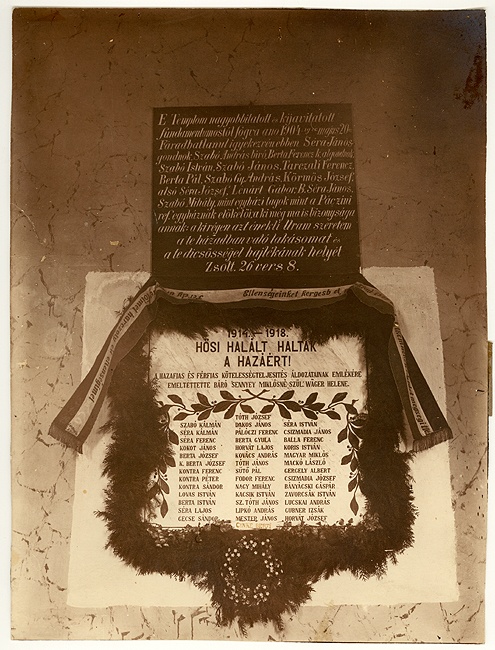 E Templom nagyobbítatott és kijavítatott
fundamentomostól fogva ano 1904
Fáradhatlanul ügyekezvén ebben Séra János
gondnok, Szabó András bíró, Berta Ferencz
Szabó István, Szabó János, Tarczali Ferencz
Berta Pál, Szabó András, Körmös József,
alsó Séra József, Lénárt Gábor, B. Séra János,
Szabó Mihály, mint egyházi tagok mint a Páczini
ref. egyháznak elökelöi a ki még ma is bizonysága
annak: a ki régen azt énekli Uram szeretem
a te házadban való lakásomat és
a te dicsösséged hajlékának helyét
Zsolt. 26 vers 8.
Ellenségeinket kergesd el
1914.–1918.
HŐSI HALÁLT HALTAK
A HAZÁÉRT!
A HAZAFIAS ÉS FÉRFIAS KÖTELESSÉGTELJESITÉS ÁLDOZATAINAK EMLÉKÉRE
EMELTETTETTE BÁRÓ SENNYEY MIKLÓSNÉ SZÜL. WÁGER HELENE.
TÓTH JÓZSEF
SZABÓ KÁLMÁN DAKOS JÁNOS SÉRA ISTVÁN
SÉRA KÁLMÁN PÁLÓCZI FERENC CSIZMADIA JÁNOS
SÉRA FERENC BERTA GYULA BALLA FERENC
KOKOT JÁNOS HORVÁT LAJOS KORIS ISTVÁN
BERTA JÓZSEF KOVÁCS ANDRÁS MAGYAR MIKLÓS
K. BERTA JÓZSEF TÓTH JÁNOS MACKÓ LÁSZLÓ
KONTRA FERENC SÜTŐ PÁL GERGELY ALBERT
KONTRA PÉTER FODOR FERENC CSIZMADIA JÓZSEF
KONTRA SÁNDOR NAGY MIHÁLY BÁNYÁCSKI GÁSPÁR
LOVAS ISTVÁN KACSIK ISTVÁN ZAVORCSÁK ISTVÁN
BERTA ISTVÁN SZ. TÓTH JÁNOS LUCSKAI ANDRÁS
SÉRA LAJOS LIPKÓ ANDRÁS GUBNER IZSÁK
GECSE SÁNDOR MESTER JÁNOS HORVÁT JÓZSEF